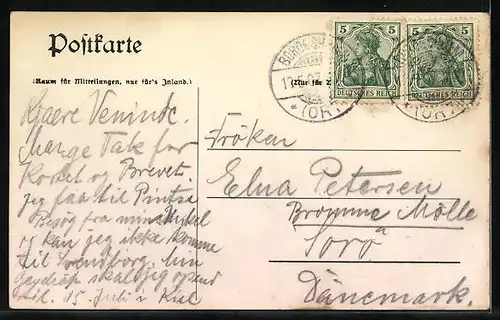 Postkarte
(Raum für Mitteilungen, nur für's Inland.)
(Nur für
5 5
5 5
DEUTSCHES REICH
DEUTSCHES REICH
* (ORT)
Kjaere Veninde.
Mange Tak for
Kortet og Brevet.
Jeg faar til Pintse
Besøg fra min Onkel
og kan jeg ikke komme
til Svendborg. Min
skal jeg
til. 15 Juli i Kiel
Fröken
Elna Petersen
Bromme Mölle
Sorö
Dänemark.